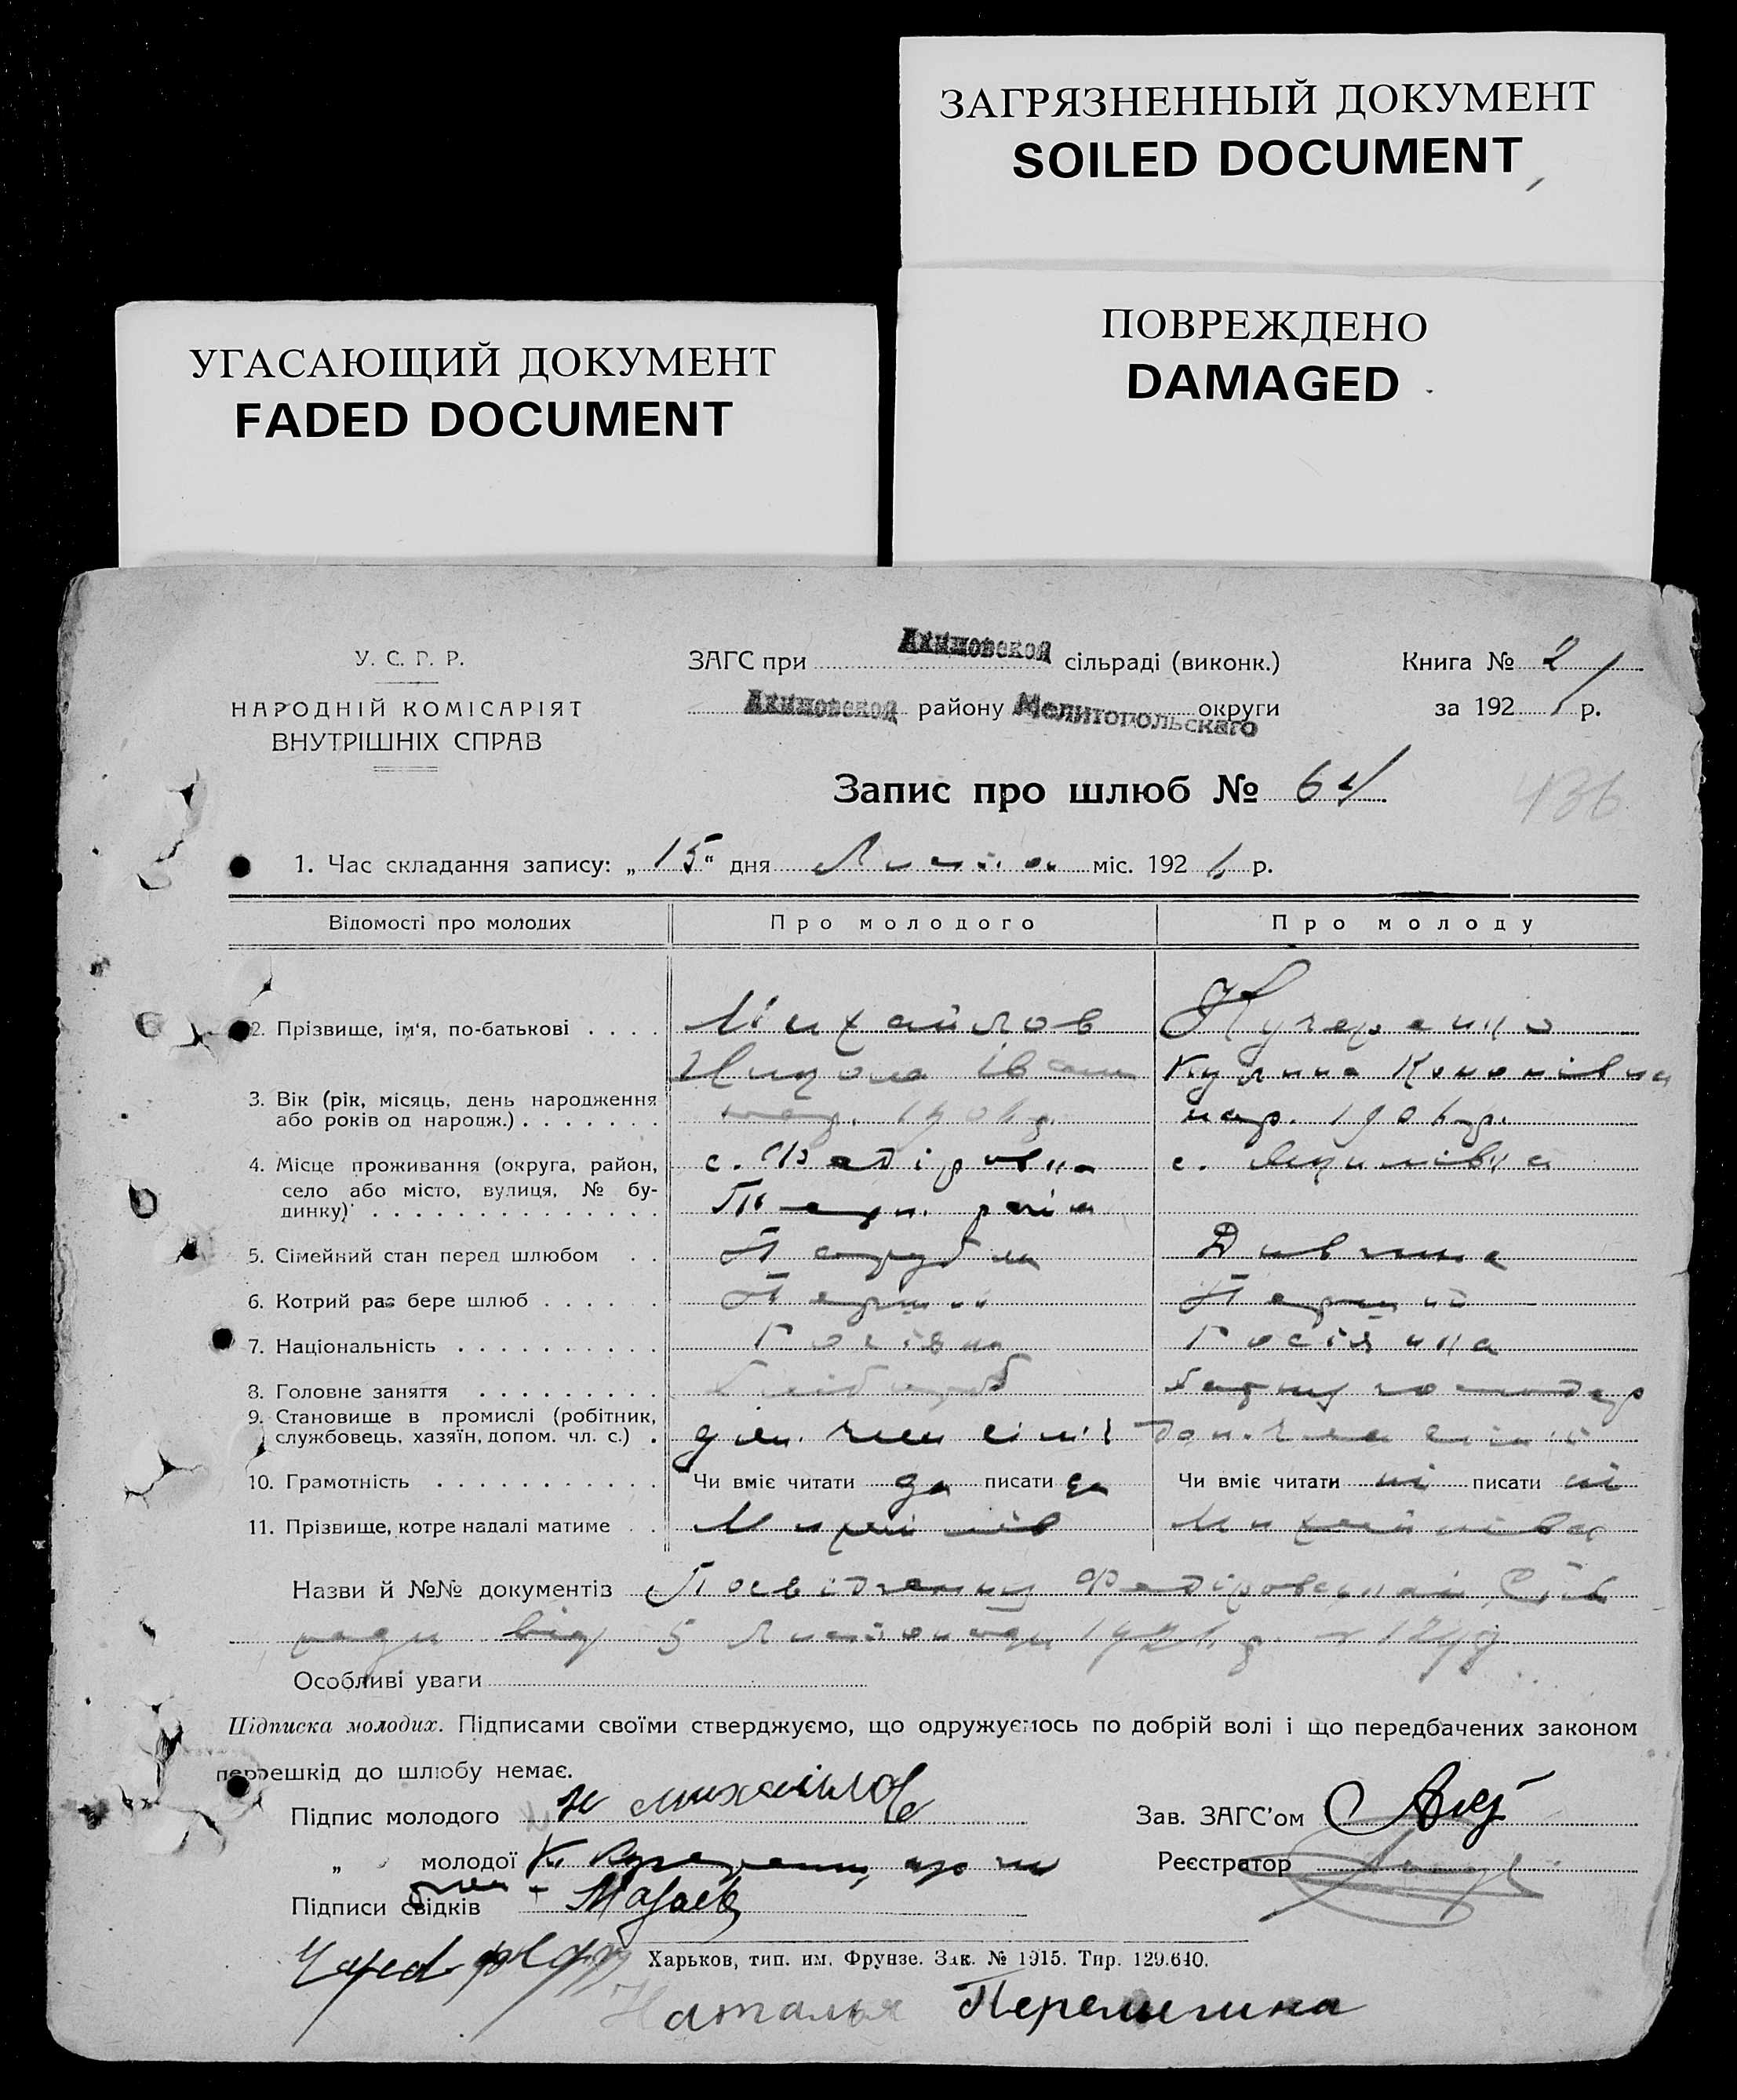 ЗАГРЯЗНЕННЫЙ ДОКУМЕНТ
SOILED DOCUMENT
ПОВРЕЖДЕНО
DAMAGED
УГАСАЮЩИЙ ДОКУМЕНТ
FADED DOCUMENT
У. С. Р. Р.
НАРОДНІЙ КОМІСАРІЯТ
ВНУТРІШНІХ СПРАВ
ЗАГС при Акимовской сільраді (виконк.)
Акимовской району Мелитопольскаго округи
Книга № 2
за 192 р.
Запис про шлюб № 64
436
1. Час складання запису: „15“ дня міс. 1926 р.
Відомості про молодих Про молодого Про молоду
2. Прізвище, ім'я, по-батькові Михайлов Кучеренко
Микола Іван Кулина Кононівна
3. Вік (рік, місяць, день народження або років од народж.) нар. 1906 р. нар. 1906 р.
4. Місце проживання (округа, район, село або місто, вулиця, № будинку) с. Федірівка с. Якимівка
району
5. Сімейний стан перед шлюбом Парубок Дивчина
6. Котрий раз бере шлюб Перший Перший
7. Національність Росіян Росіянка
8. Головне заняття Хлібороб
9. Становище в промислі (робітник, службовець, хазяїн, допом. чл. с.) доп. член сім'ї доп. член сім'ї
10. Грамотність Чи вміє читати да писати да Чи вміє читати ні писати ні
11. Прізвище, котре надалі матиме Михайлів Михайлівна
Назви й №№ документів Посвідчення Федіровської Сіль
ради від 5 Листопада 1926 р.
Особливі уваги
Підписка молодих. Підписами своїми стверджуємо, що одружуємось по добрій волі і що передбачених законом
перешкід до шлюбу немає.
Підпис молодого Н Михайлов
Зав. ЗАГС'ом
„ молодої
Реєстратор
Підписи свідків Мазаев
Харьков, тип. им. Фрунзе. Зак. № 1915. Тир. 129.640.
Наталья Перелигина